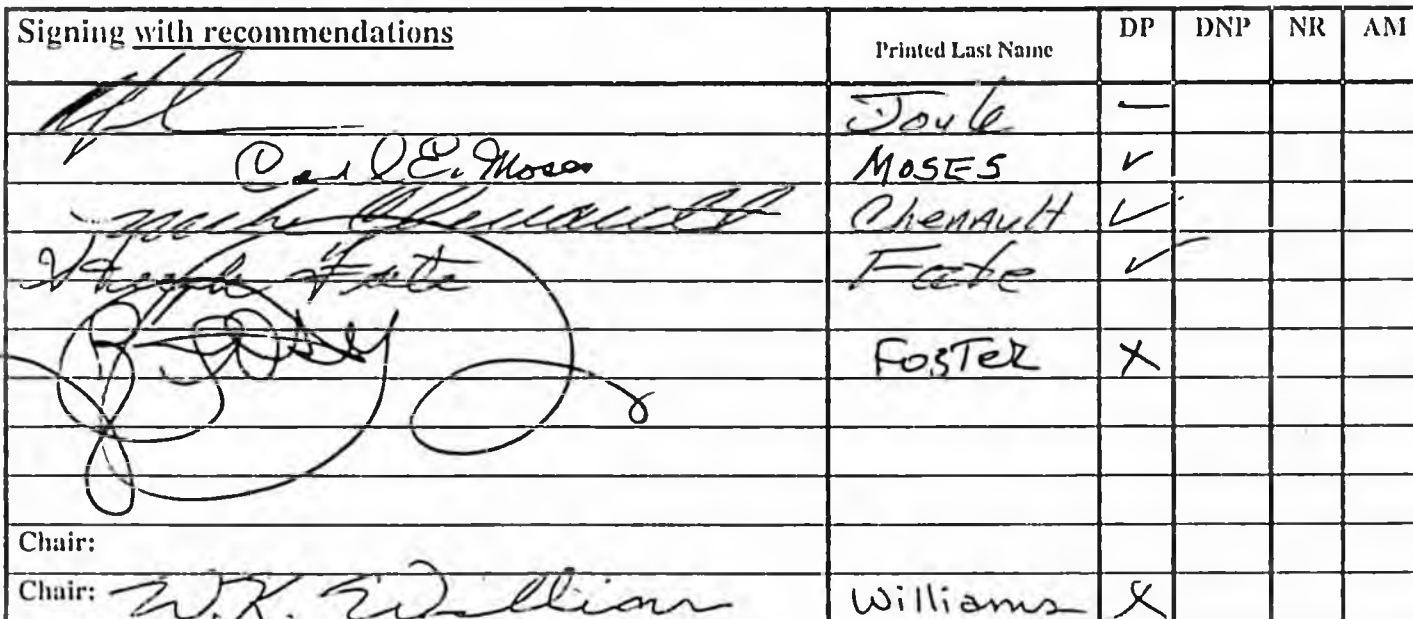 Signing with recommendations Printed Last Name DP DNP NR AM
Joule —
Carl E. Moses MOSES ✓
Mike Chenault Chenault ✓
Hugh Fate Fate ✓
Foster X
Chair:
Chair: W.K. Williams Williams X